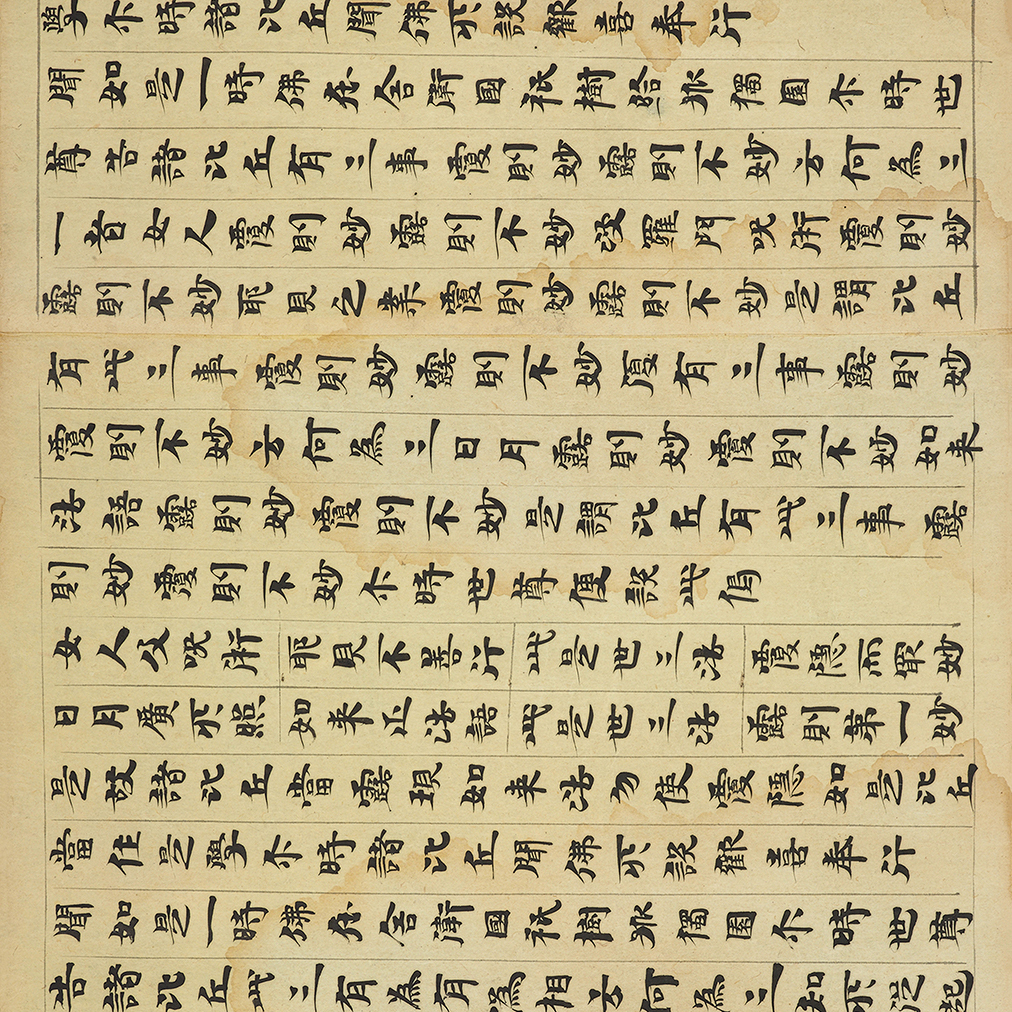 學尒時諸比丘聞佛所說歡喜奉行
聞如是一時佛在舍衛國祇樹給孤獨園尒時世
尊告諸比丘有三事覆則妙露則不妙云何為三
一者女人覆則妙露則不妙婆羅門呪術覆則妙
露則不妙耶見之業覆則妙露則不妙是謂比丘
有此三事覆則妙露則不妙復有三事露則妙
覆則不妙云何為三日月露則妙覆則不妙如来
法語露則妙覆則不妙是謂比丘有此三事露
則妙覆則不妙尒時世尊便說此偈
女人及呪術 耶見不善行 此是世三法 覆隱而最妙
日月廣所照 如来正法語 此是世三法 露則第一妙
是故諸比丘當露現如来法勿使覆隱如是比丘
當作是學尒時諸比丘聞佛所說歡喜奉行
聞如是一時佛在舍衛國祇樹孤獨園尒時世尊
告諸比丘此三有為有為相云何為三知所從起